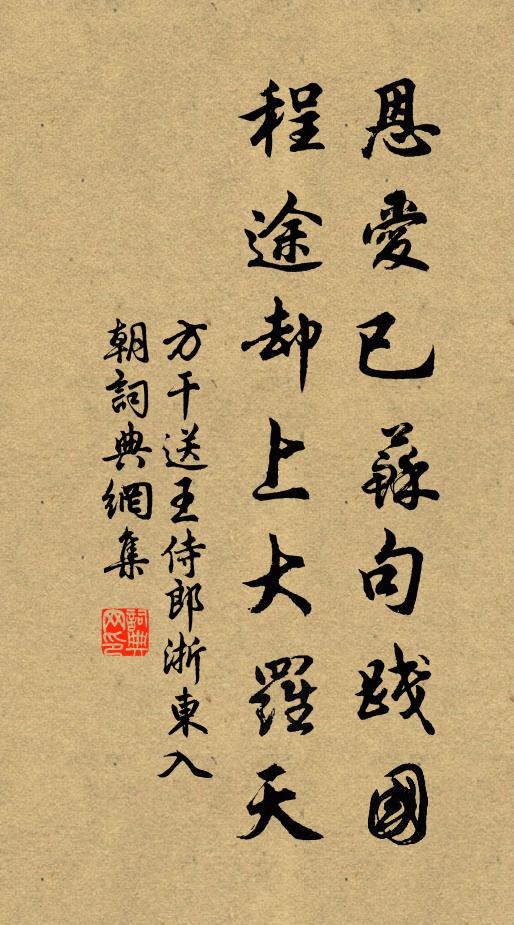 恩愛已蘇句踐國
程途却上大羅天
方干送王侍郎浙東入
朝詞典網集
詞典
网印